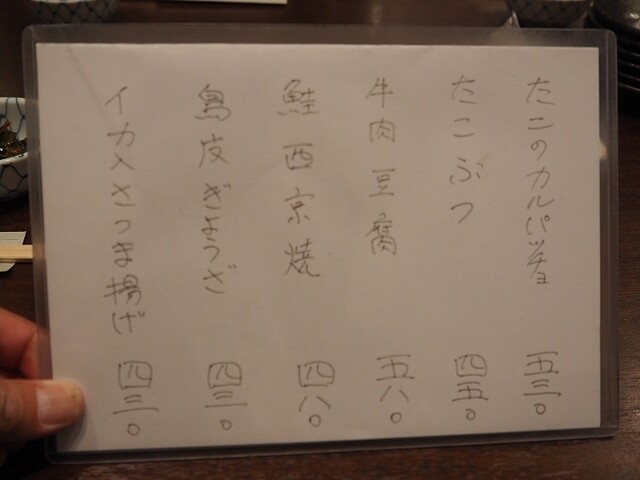 たこのカルパッチョ 五三〇
たこぶつ 四五〇
牛肉豆腐 五八〇
鮭西京焼 四八〇
鳥皮ぎょうざ 四三〇
イカメさつま揚げ 四三〇